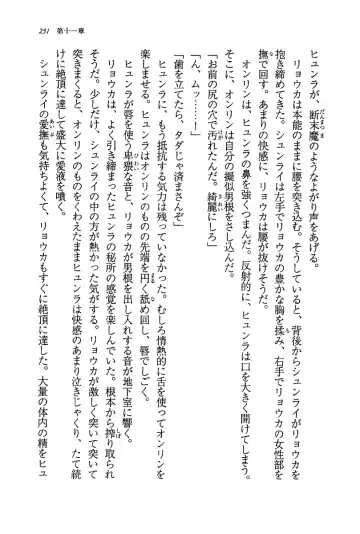 231 第十一章
ヒュンラが、断末魔のようなよがり声をあげる。
リョウカは本能のままに腰を突き込む。そうしていると、背後からシュンライがリョウカを
抱き締めてきた。シュンライは左手でリョウカの豊かな胸を揉み、右手でリョウカの女性部を
撫で回す。あまりの快感に、リョウカは腰が抜けそうだ。
オンリンは、ヒュンラの鼻を強くつまんだ。反射的に、ヒュンラは口を大きく開けてしまう。
そこに、オンリンは自分の擬似男根をさし込んだ。
「お前の尻の穴で汚れたんだ。綺麗にしろ」
「ん、ムッ……ー」
「歯を立てたら、タダじゃ済まさんぞ」
ヒュンラに、もう抵抗する気力は残っていなかった。むしろ情熱的に舌を使ってオンリンを
楽しませる。ヒュンラはオンリンのものの先端を円く舐め回し、唇でしごく。
ヒュンラが唇を使う卑猥な音と、リョウカが男根を出し入れする音が地下室に響く。
リョウカは、よく引き締まったヒュンラの秘所の感覚を楽しんでいた。根本から搾り取られ
そうだ。少しだけ、シュンライの中の方が熱かった気がする。リョウカが激しく突いて突いて
突きまくると、オンリンのものをくわえたままヒュンラは快感のあまり泣きじゃくり、たて続
けに絶頂に達して盛大に愛液を噴く。
シュンライの愛撫も気持ちよくて、リョウカもすぐに絶頂に達した。大量の体内の精をヒュ